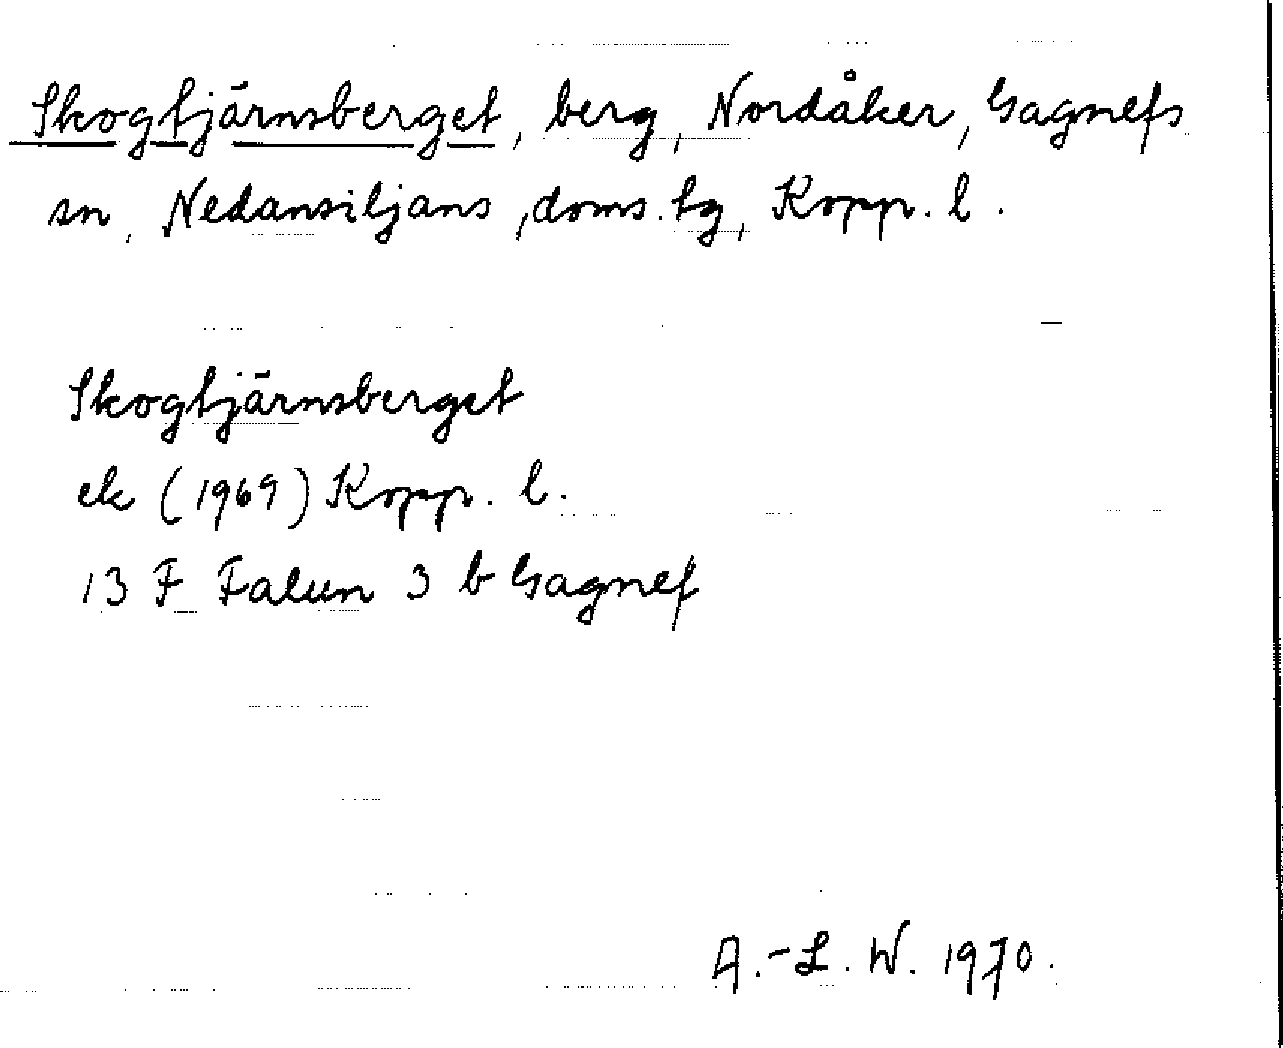 Skogtjärnsberget, berg, Nordåker, Gagnefs
sn, Nedansiljans, doms. tg, Kopp. l.
Skogtjärnsberget
ek (1969) Kopp. l.
13 F Falun 3 b Gagnef
A.-L. W. 1970.